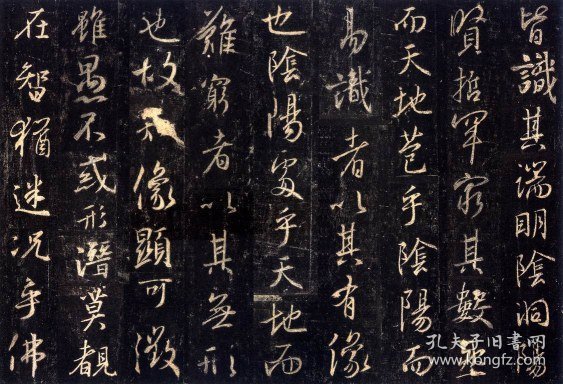 皆識其端明陰洞陽
賢哲罕窮其數然
而天地苞乎陰陽而
易識者以其有像
也陰陽處乎天地而
難窮者以其無形
也故知像顯可徵
雖愚不惑形潛莫覩
在智猶迷況乎佛
孔夫子旧书网
www.kongfz.com